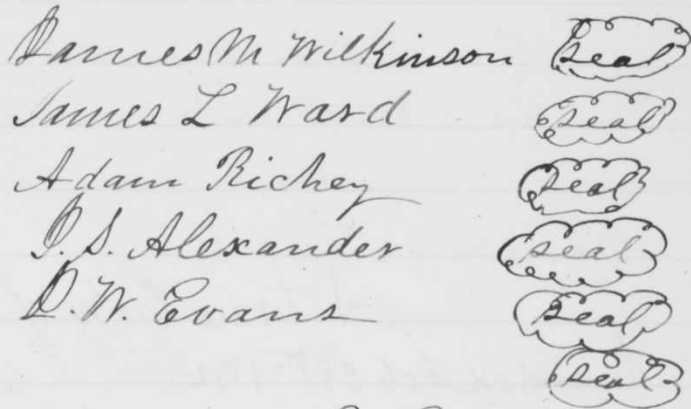 James M Wilkinson seal
James L Ward seal
Adam Richey seal
S. Alexander seal
W. Evans seal
seal